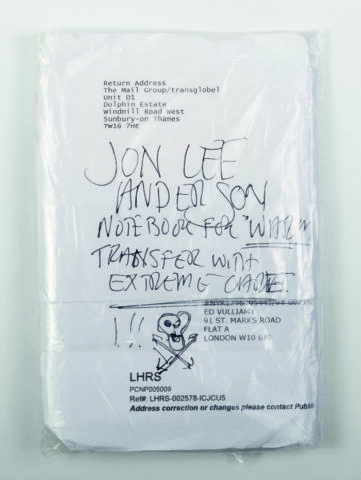 Return Address
The Mail Group/transglobel
Unit D1
Dolphin Estate
Windmill Road West
Sunbury-on Thames
TW16 7HE
JON LEE
ANDERSON
NOTEBOOK FOR "WAR"
TRANSFER WITH
EXTREME CARE.
!!!
ED VULLIAMY
91 ST. MARKS ROAD
FLAT A
LONDON W10
LHRS
PCNP005009
Ref#: LHRS-002578-ICJCU5
Address correction or changes please contact